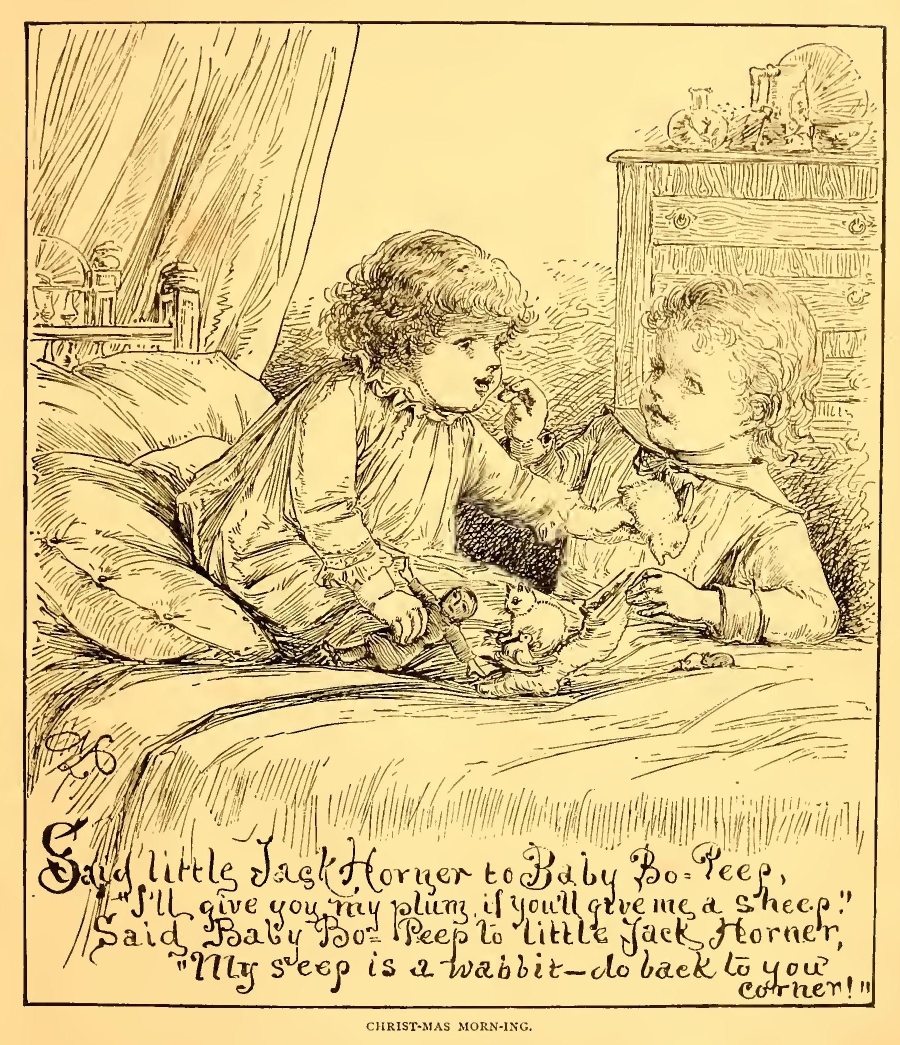 Said little Jack Horner to Baby Bo=Peep,
"I'll give you my plum, if you'll give me a sheep!"
Said Baby Bo= Peep to little Jack Horner,
"My s'eep is a wabbit—do back to you
corner!"
CHRIST-MAS MORN-ING.